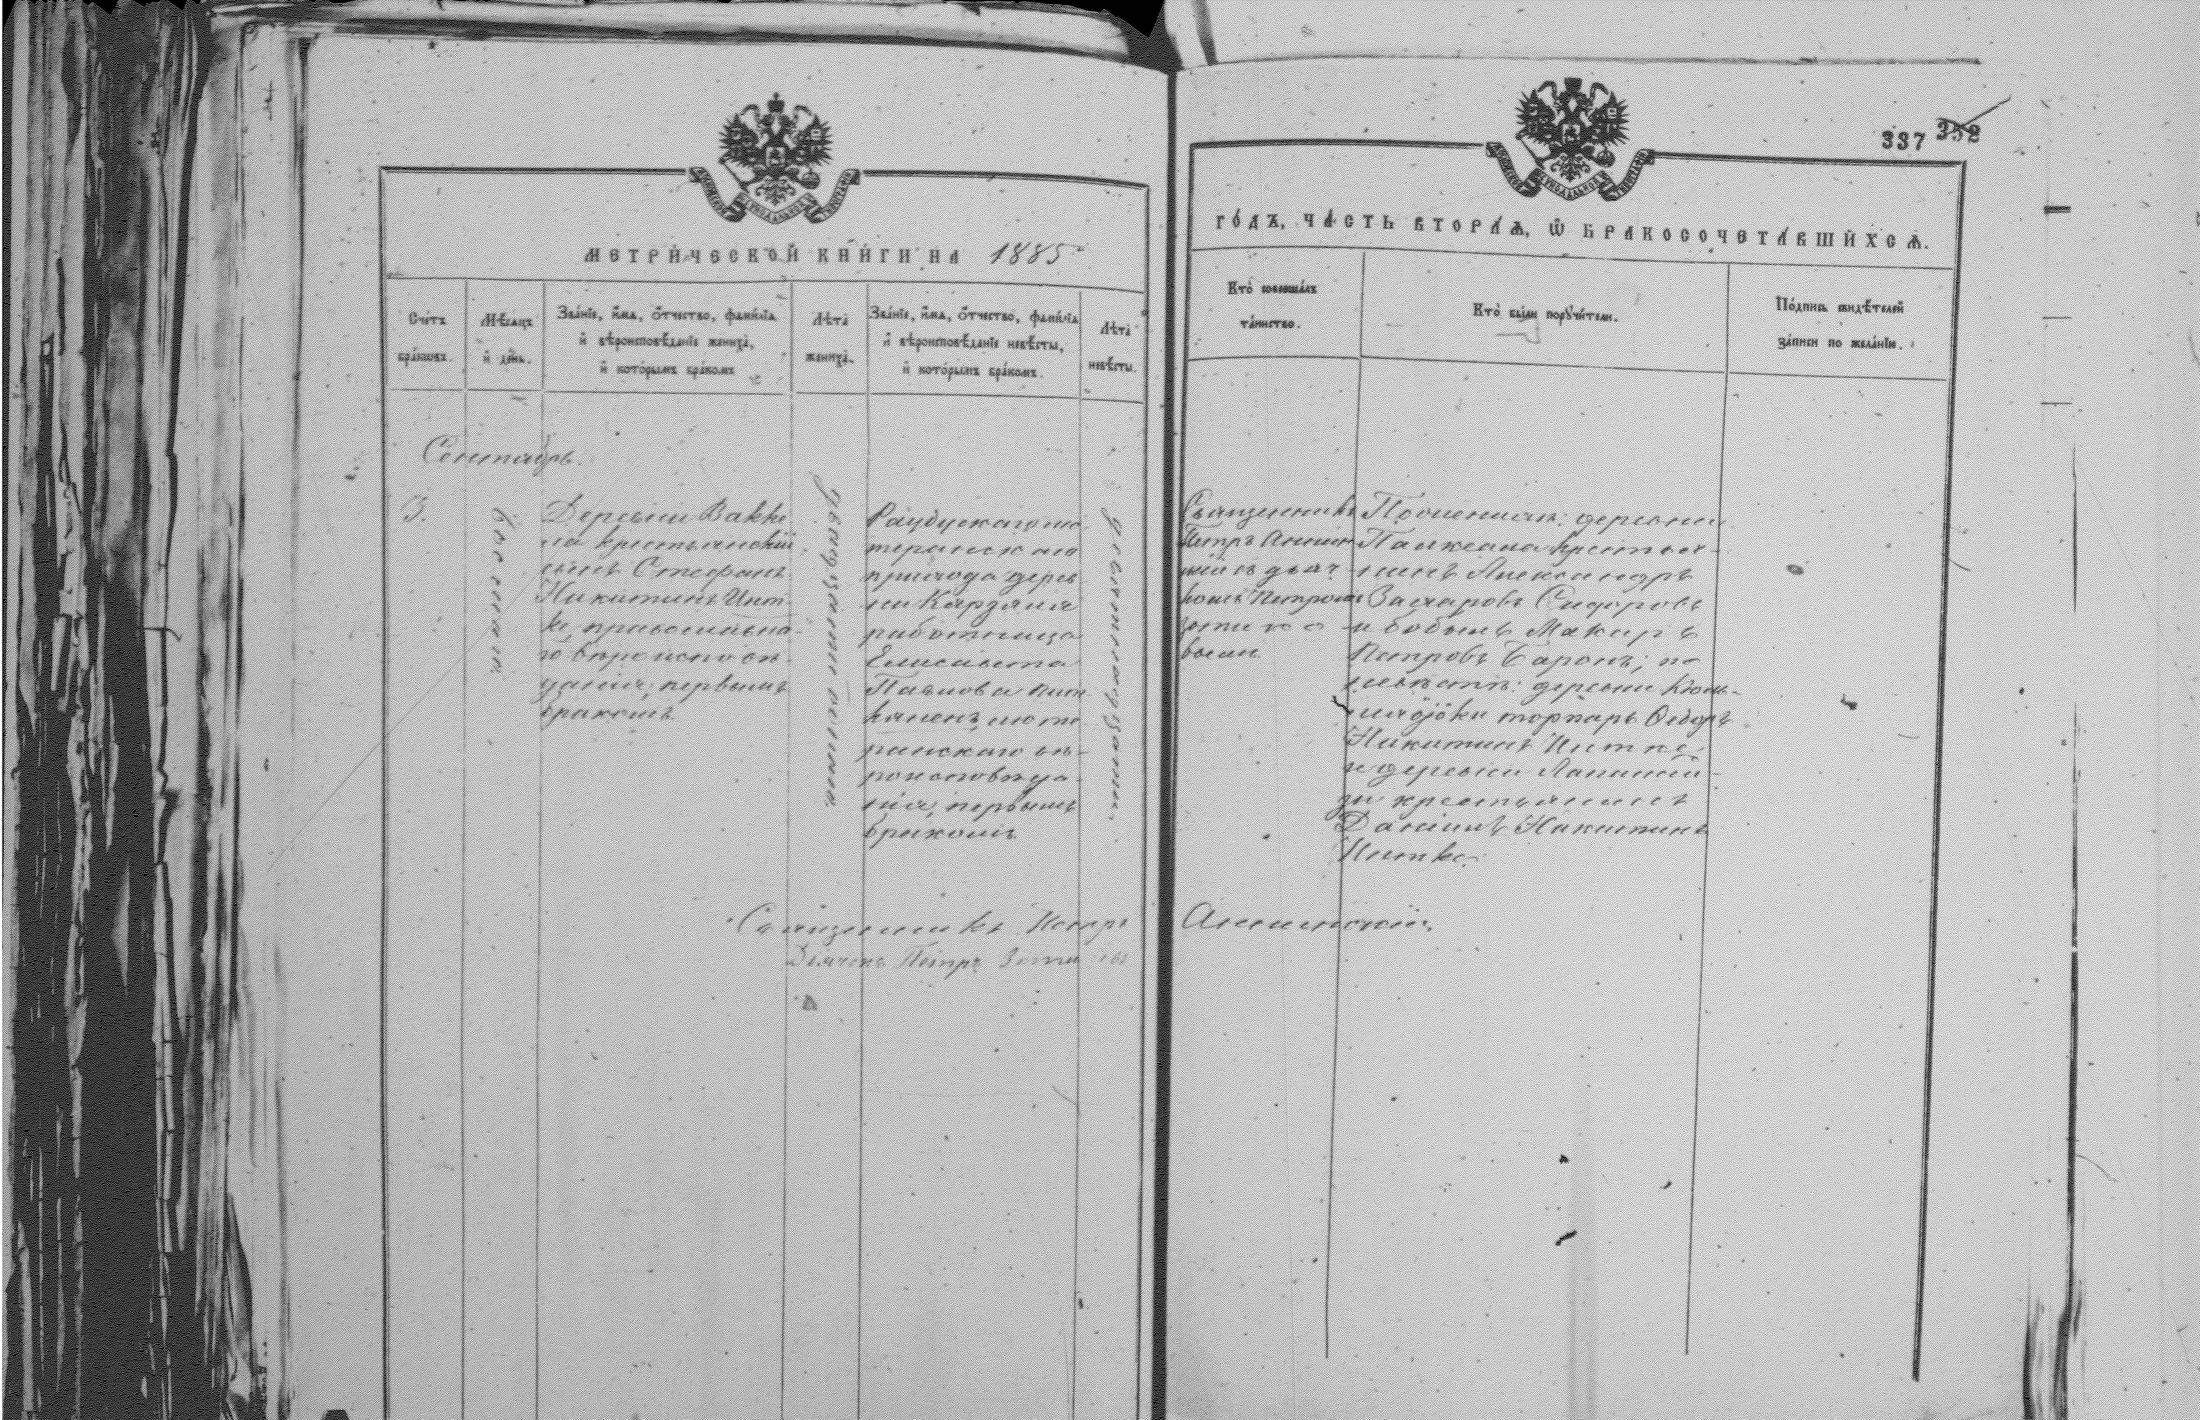 337 352
МЕТРИ́ЧЕСКОЙ КНИ́ГИ НА 1885
ГО́ДЪ, ЧА́СТЬ ВТОРА́Ѧ, Ѡ БРАКОСОЧЕТА́ВШИХСѦ.
Сче́тъ
бра́ковъ.
Мѣ́сяцъ
и де́нь.
Зва́нїе, и́мѧ, ѻ́тчество, фами́лїѧ
и вѣроисповѣ́данїе жениха̀,
и кото́рымъ бра́комъ
Лѣ́та
жениха̀.
Зва́нїе, и́мѧ, ѻ́тчество, фами́лїѧ
и вѣроисповѣ́данїе невѣ́сты,
и кото́рымъ бра́комъ.
Лѣ́та
невѣ́сты.
Кто̀ соверша́лъ
та́инство.
Кто̀ бы́ли порꙋчи́тели.
По́дпись свидѣ́телей
за́писи по жела́нїю.
Сентябрь.
3.
Восьмаго.
Деревни Вакке
ла крестьянскій
сынъ Стефанъ
Никитинъ Инт-
ке, православна-
го вѣроисповѣ-
данія; первымъ
бракомъ.
двадцати
Раудускаго лю
теранскаго
прихода дерев-
ни Карзала
работница
Елисавета
Павлова
люте
ранскаго вѣ-
роисповѣда-
нія; первымъ
бракомъ.
девятнадцати.
Священникъ
Петръ Аннин-
скій съ дьяч-
комъ Петромъ
Зотико-
вымъ.
По женихѣ: деревни
крестья-
нинъ Александръ
Захаровъ Сидоровъ
и бобыль Макаръ
Петровъ Баронъ; по
невѣстѣ: деревни
торпарь Ѳедоръ
Никитинъ Интке
и деревни
крестьянинъ
Даніилъ Никитинъ
Интке.
Священникъ Петръ Аннинскій.
Дьячекъ Петръ Зотиковъ